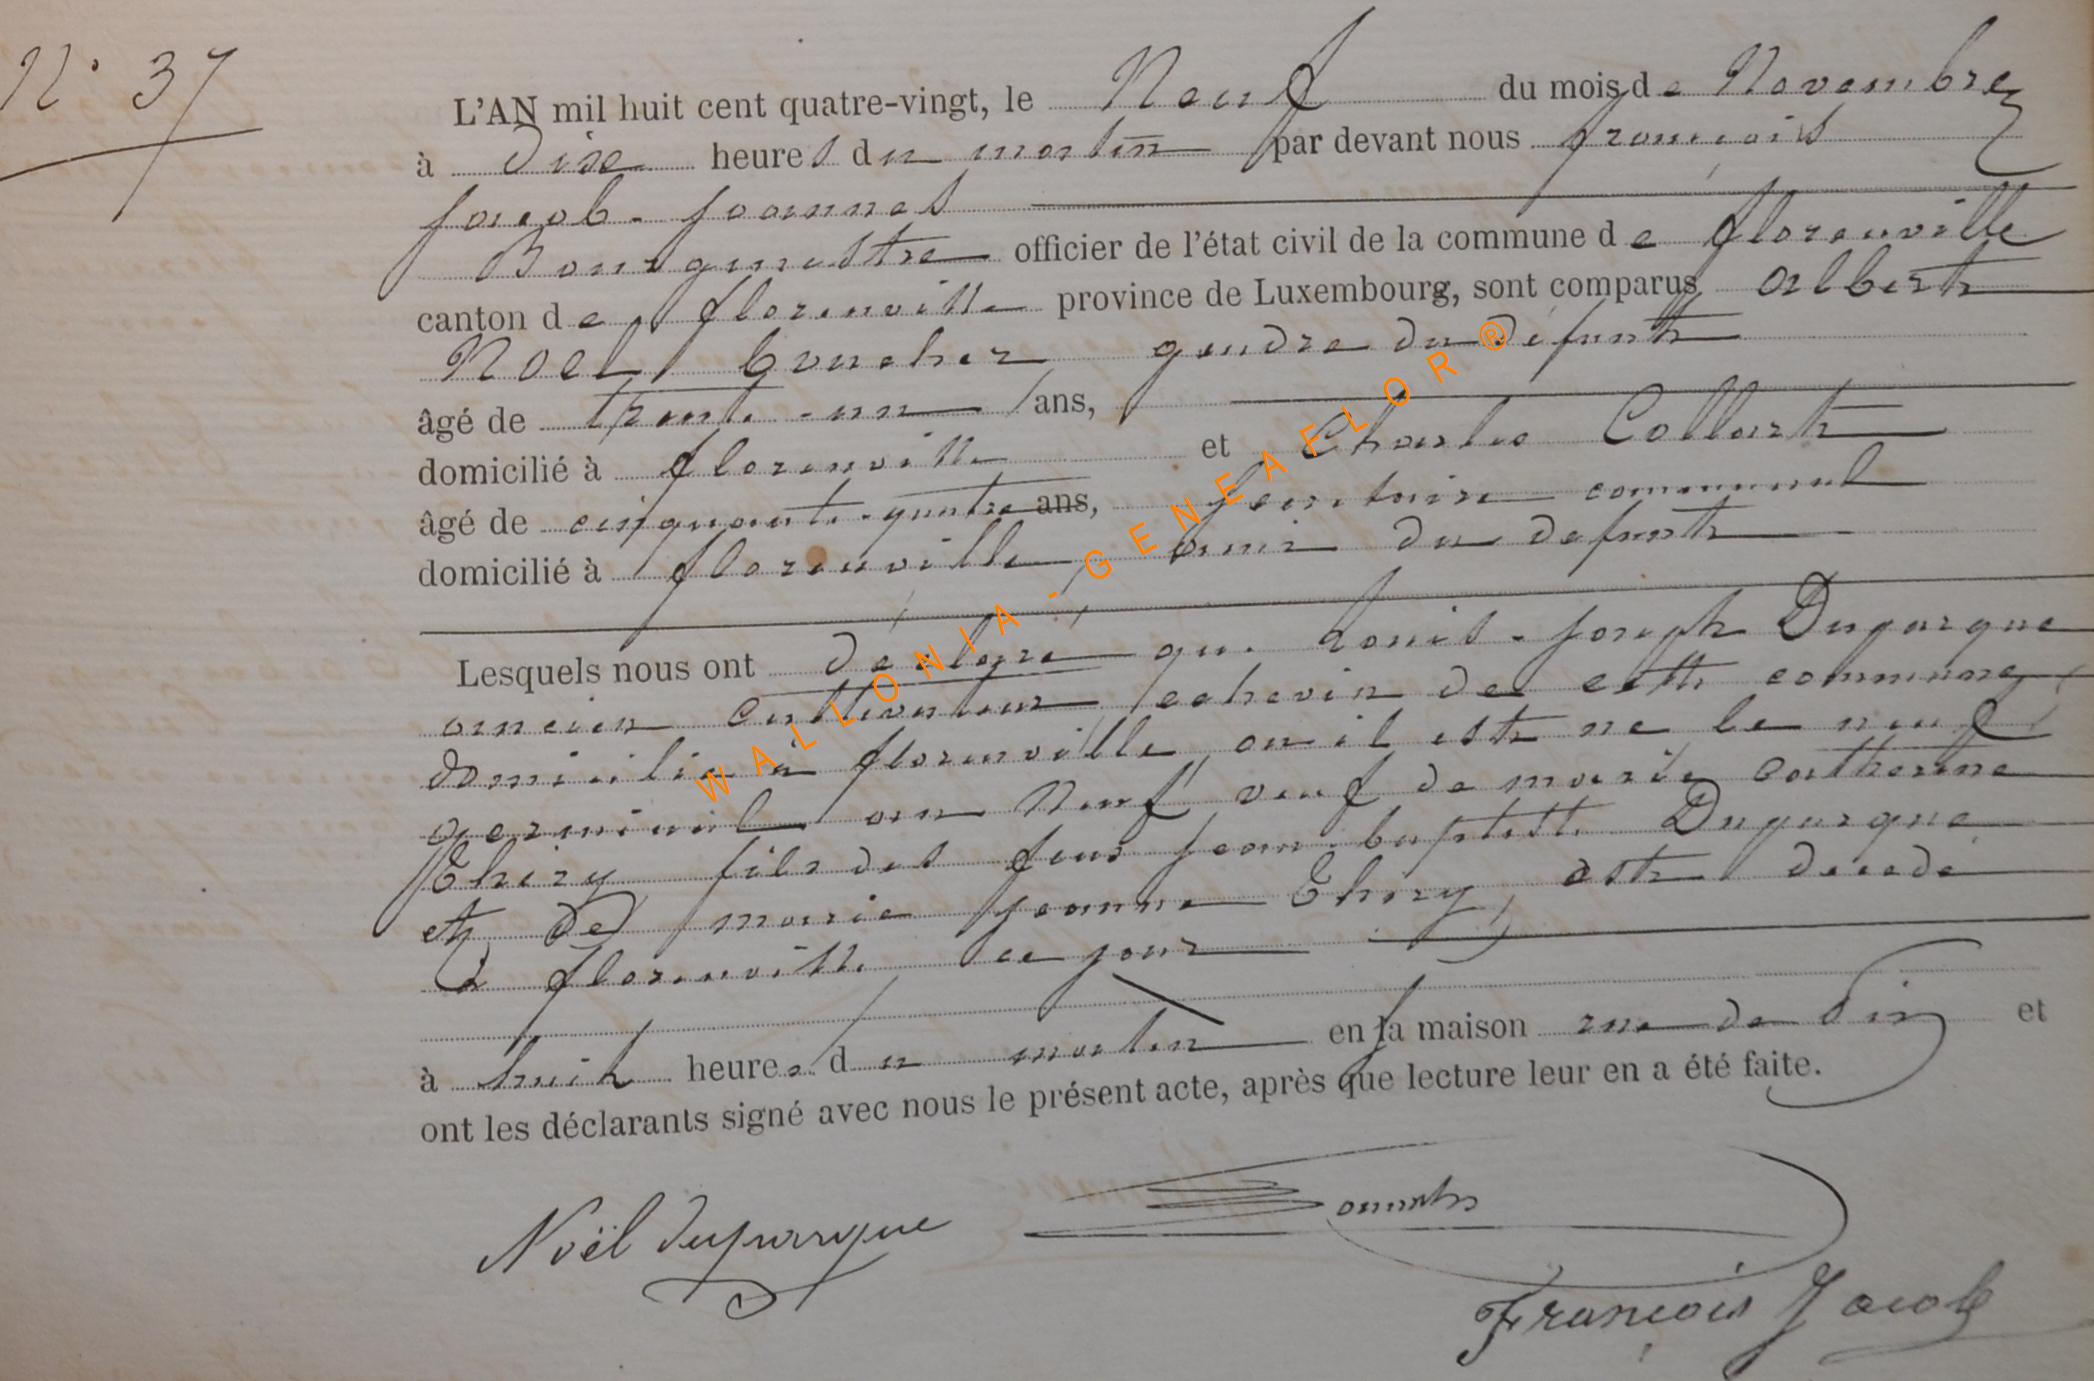 N° 37
L'AN mil huit cent quatre-vingt, le Neuf du mois de Novembre
à dix heures du matin par devant nous françois
jacob-joannes
Bourgmestre officier de l'état civil de la commune de florenville
canton de florenville province de Luxembourg, sont comparus albert
Noel boucher gendre du défunt
âgé de trente-un ans,
domicilié à florenville et Charles Collart
âgé de cinquante-quatre ans, secrétaire communal
domicilié à florenville amis du defunt
Lesquels nous ont déclaré que Louis-joseph Duparque
ancien cultivateur echevin de cette commune
domicilié à florenville ou il est ne le neuf
germinal an Neuf, veuf de marie catherine
Thiry fils des feus jean-baptiste Duparque
et de marie jeanne Thiry, est decedé
à florenville ce jour
à huit heures du matin en la maison rue de et
ont les déclarants signé avec nous le présent acte, après que lecture leur en a été faite.
Noël duparque
François Jacob
WALLONIA-GENEAFLOR®